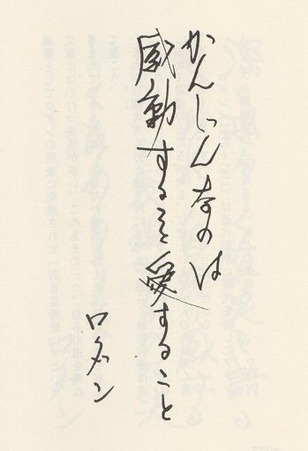 かんじんなのは
感動すること愛すること
ロダン